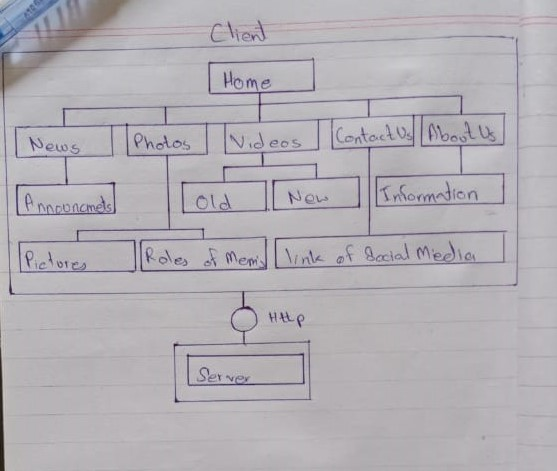 Client
Home
News
Photos
Videos
Contact Us
About Us
Announcmets
Old
New
Information
Pictores
Roles of Mem's
link of Social Media
Http
Server